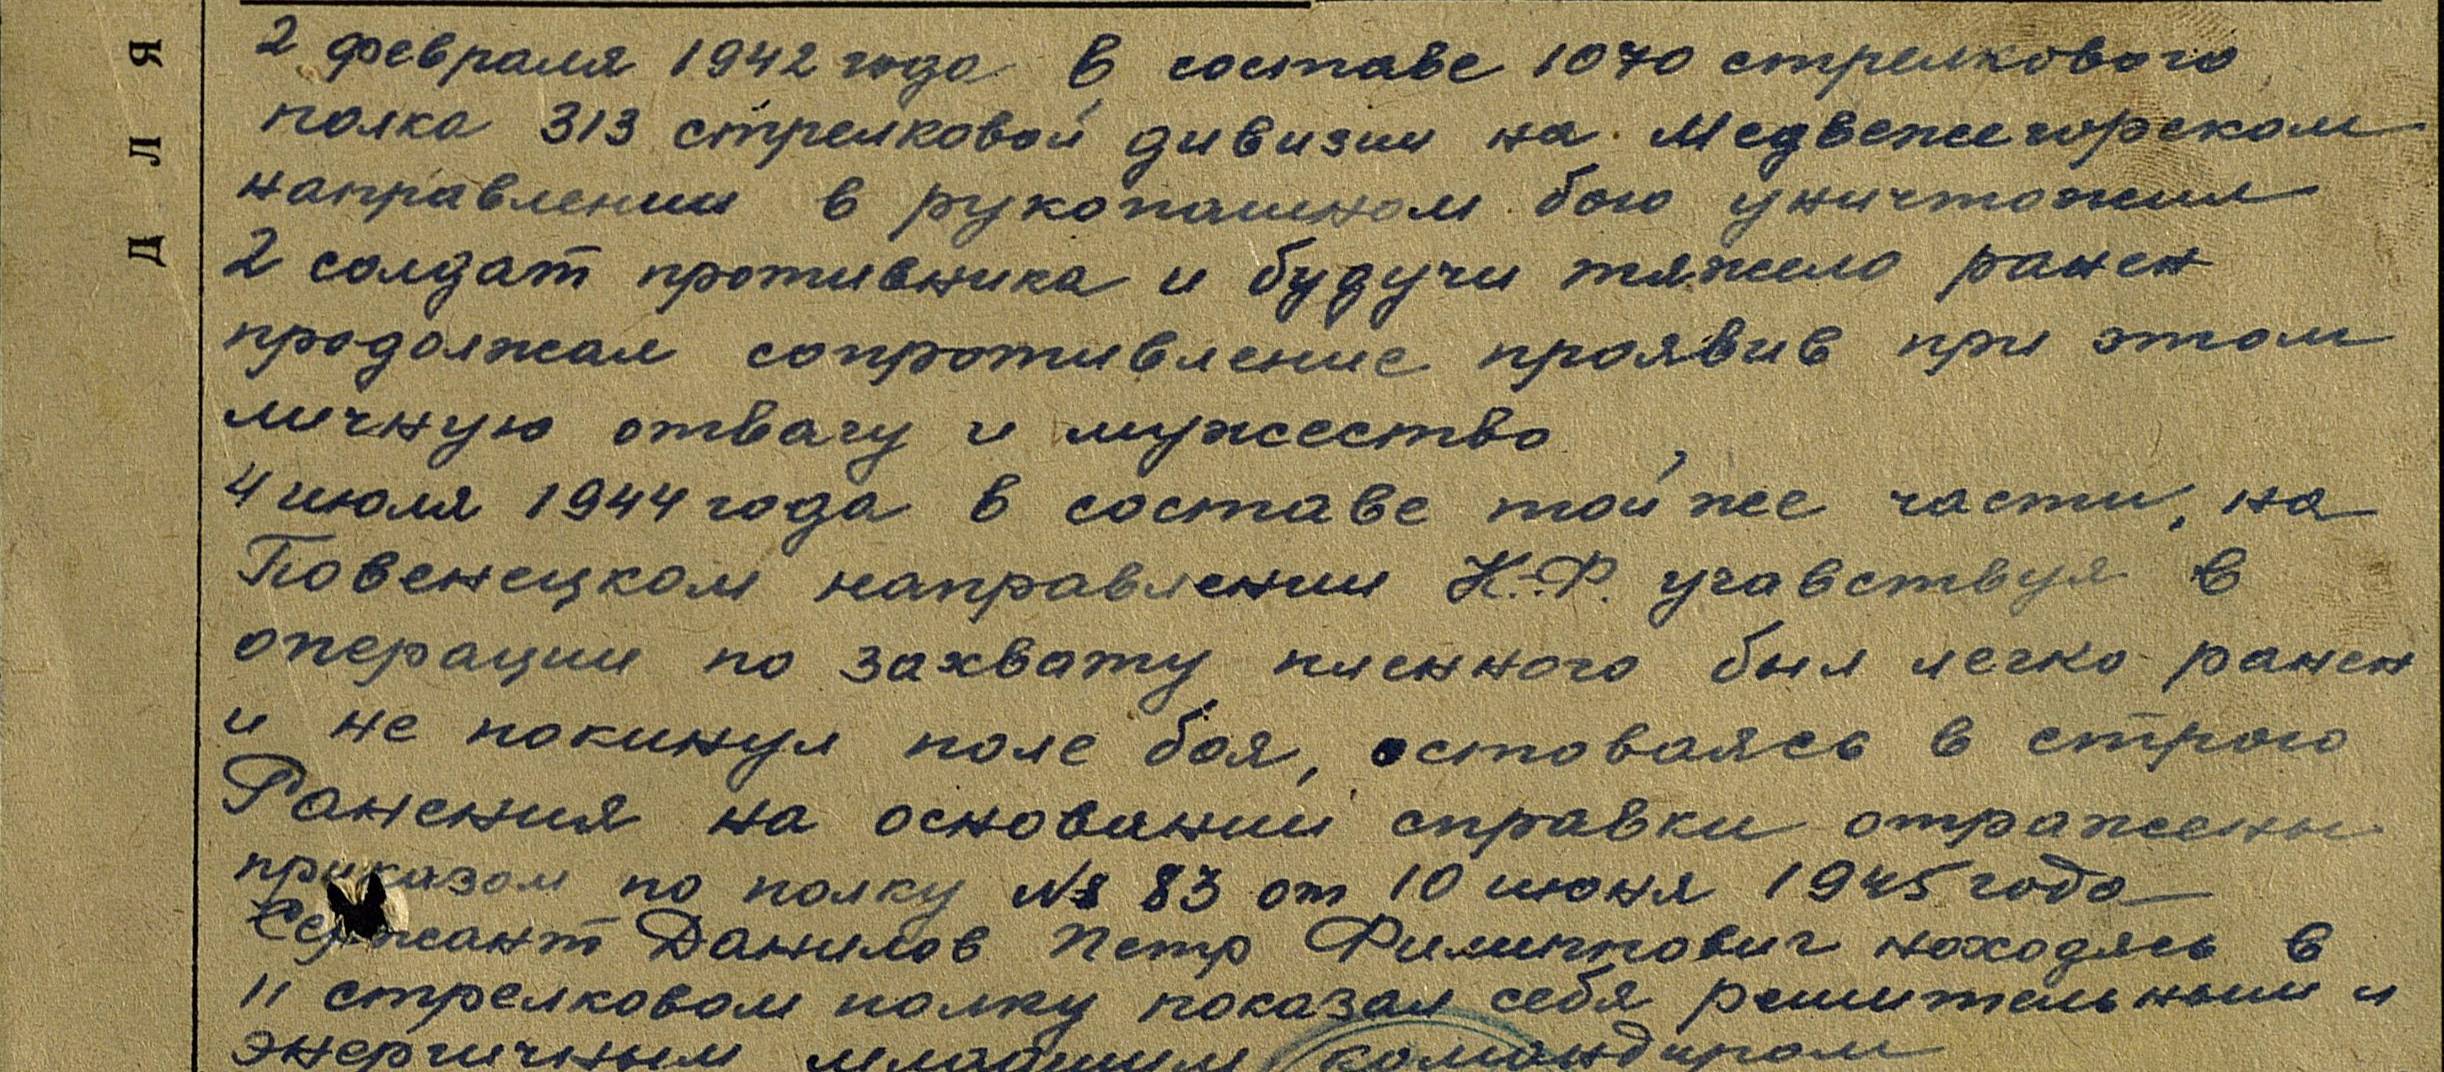 ДЛЯ
2 февраля 1942 года в составе 1070 стрелкового
полка 313 стрелковой дивизии на Медвежегорском
направлении в рукопашном бою уничтожил
2 солдат противника и будучи тяжело ранен
продолжал сопротивление проявив при этом
личную отвагу и мужество
4 июля 1944 года в составе той же части, на
Повенецком направлении К.-Ф. учавствуя в
операции по захвату пленного был легко ранен
и не покинул поле боя, остоваясь в строю
Ранения на основании справки отражены
приказом по полку № 83 от 10 июня 1945 года
Сержант Данилов Петр Филиппович находясь в
11 стрелковом полку показал себя решительным и
энергичным младшим командиром